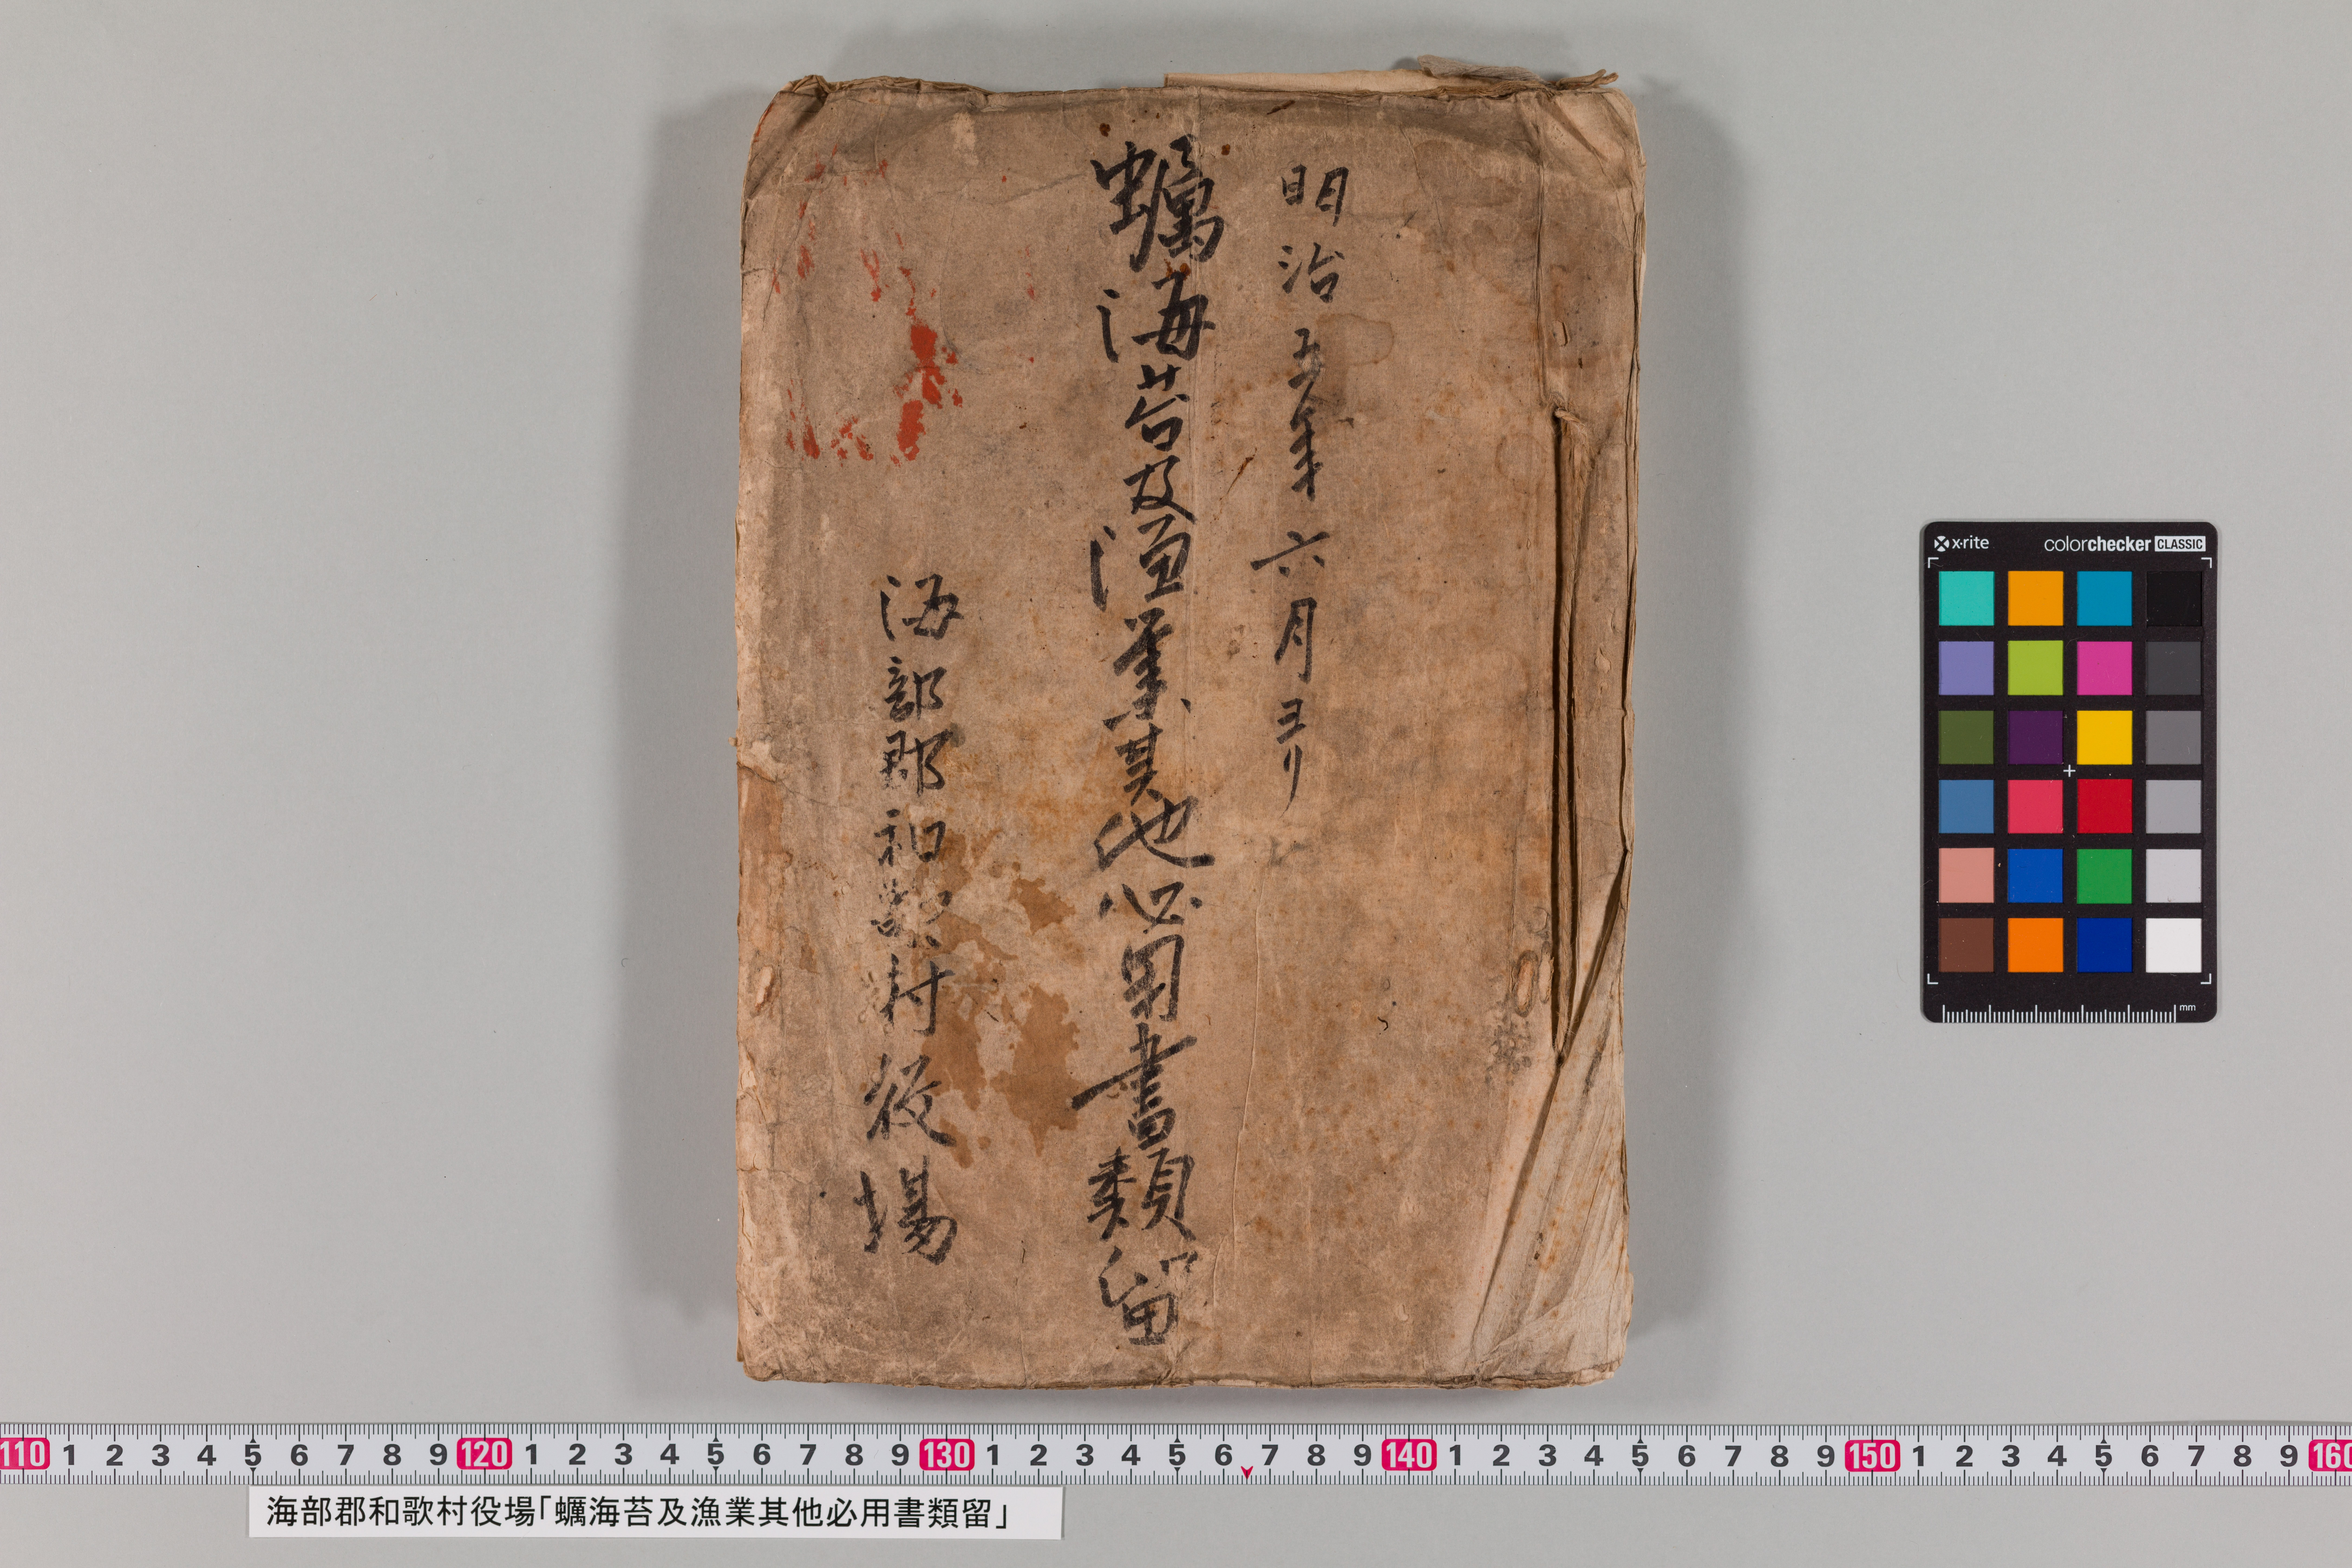 明治五年六月ヨリ
蠣海苔及漁業其他必用書類留
海部郡和歌村役場
x-rite colorchecker CLASSIC
mm
110 1 2 3 4 5 6 7 8 9 120 1 2 3 4 5 6 7 8 9 130 1 2 3 4 5 6 7 8 9 140 1 2 3 4 5 6 7 8 9 150 1 2 3 4 5 6 7 8 9 160
海部郡和歌村役場「蠣海苔及漁業其他必用書類留」